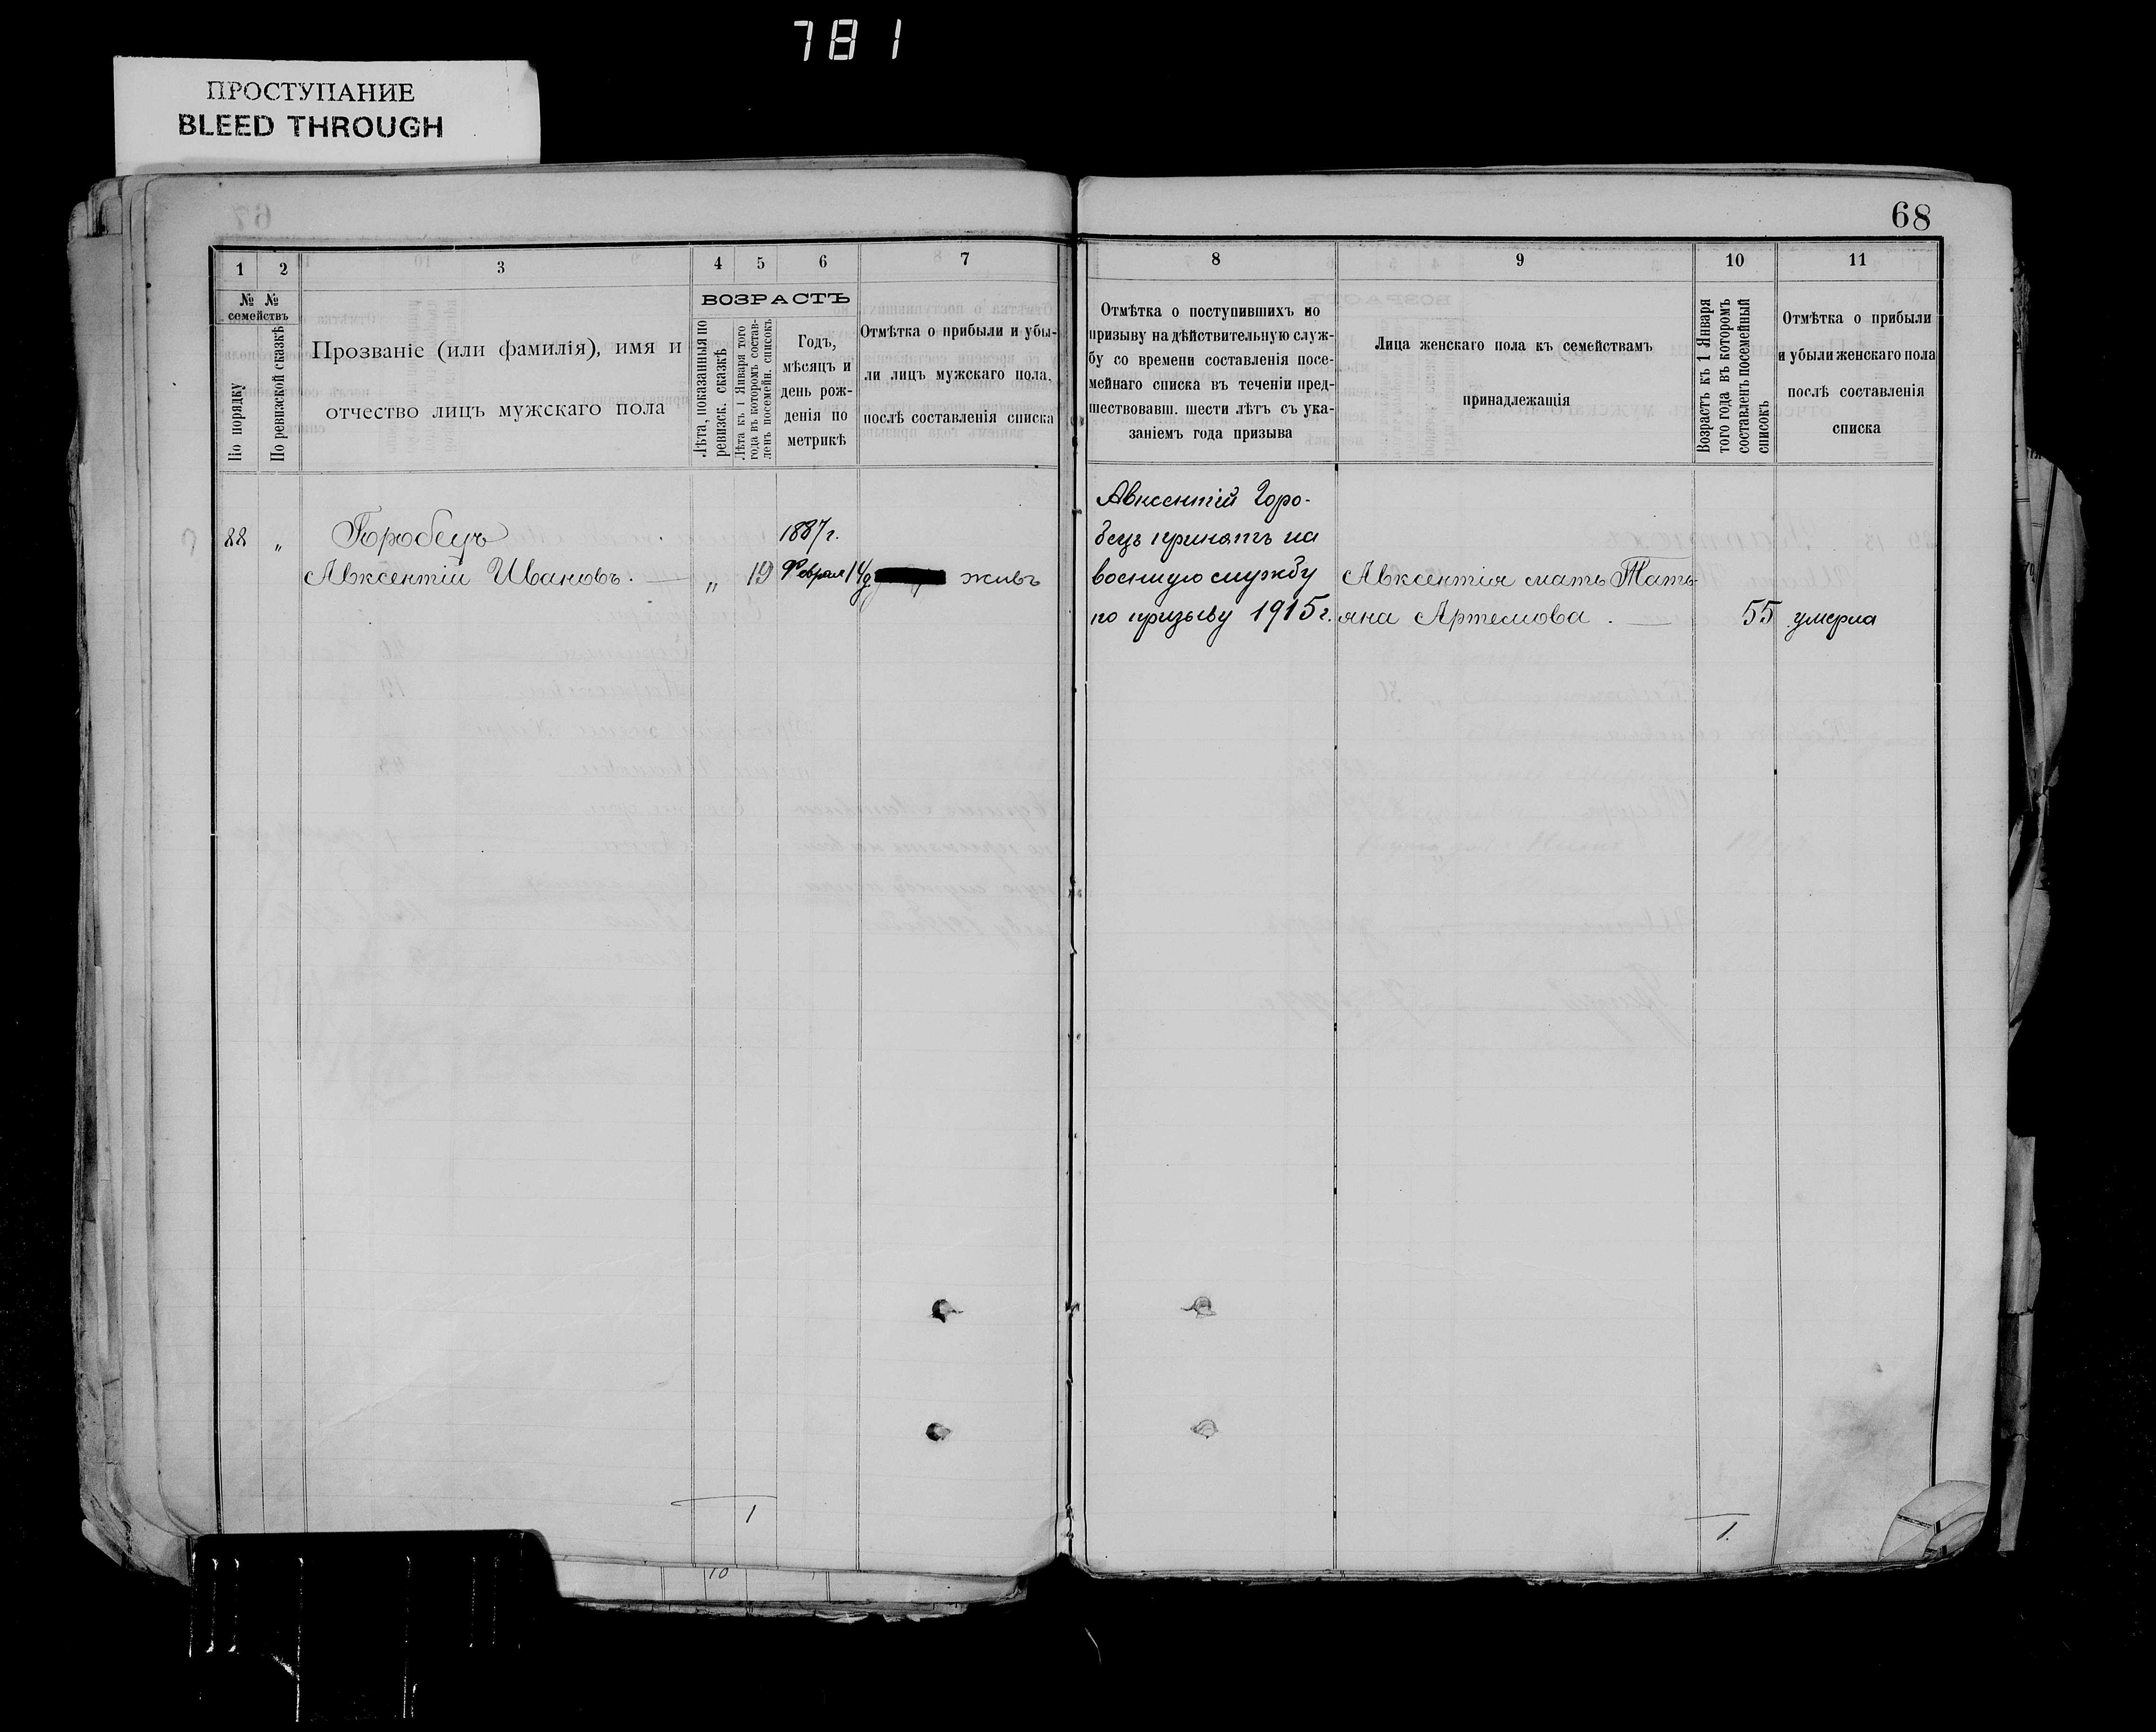 781
ПРОСТУПАНИЕ
BLEED THROUGH
68
1 2 3 4 5 6 7
№ № семействъ
По порядку
По ревизской сказкѣ
Прозваніе (или фамилія), имя и
отчество лицъ мужскаго пола
ВОЗРАСТЪ
Лѣта, показанныя по
ревизск. сказкѣ
Лѣта къ 1 Января того
года въ которомъ состав-
ленъ посемейн. списокъ
Годъ,
мѣсяцъ и
день рож-
денія по
метрикѣ
Отмѣтка о прибыли и убы-
ли лицъ мужскаго пола,
послѣ составленія списка
88 „ Горобецъ 1887 г.
Авксентій Ивановъ. „ 19 Февраля 14 д живъ
1
8 9 10 11
Отмѣтка о поступившихъ по
призыву на дѣйствительную служ-
бу со времени составленія посе-
мейнаго списка въ теченіи пред-
шествовавш. шести лѣтъ съ ука-
заніемъ года призыва
Лица женскаго пола къ семействамъ
принадлежащія
Возрастъ къ 1 Января
того года въ которомъ
составленъ посемейный
списокъ
Отмѣтка о прибыли
и убыли женскаго пола
послѣ составленія
списка
Авксентій Горо-
бецъ принятъ на
военную службу
по призыву 1915 г.
Авксентія мать Тать-
яна Артемова. 55 умерла
1.
10